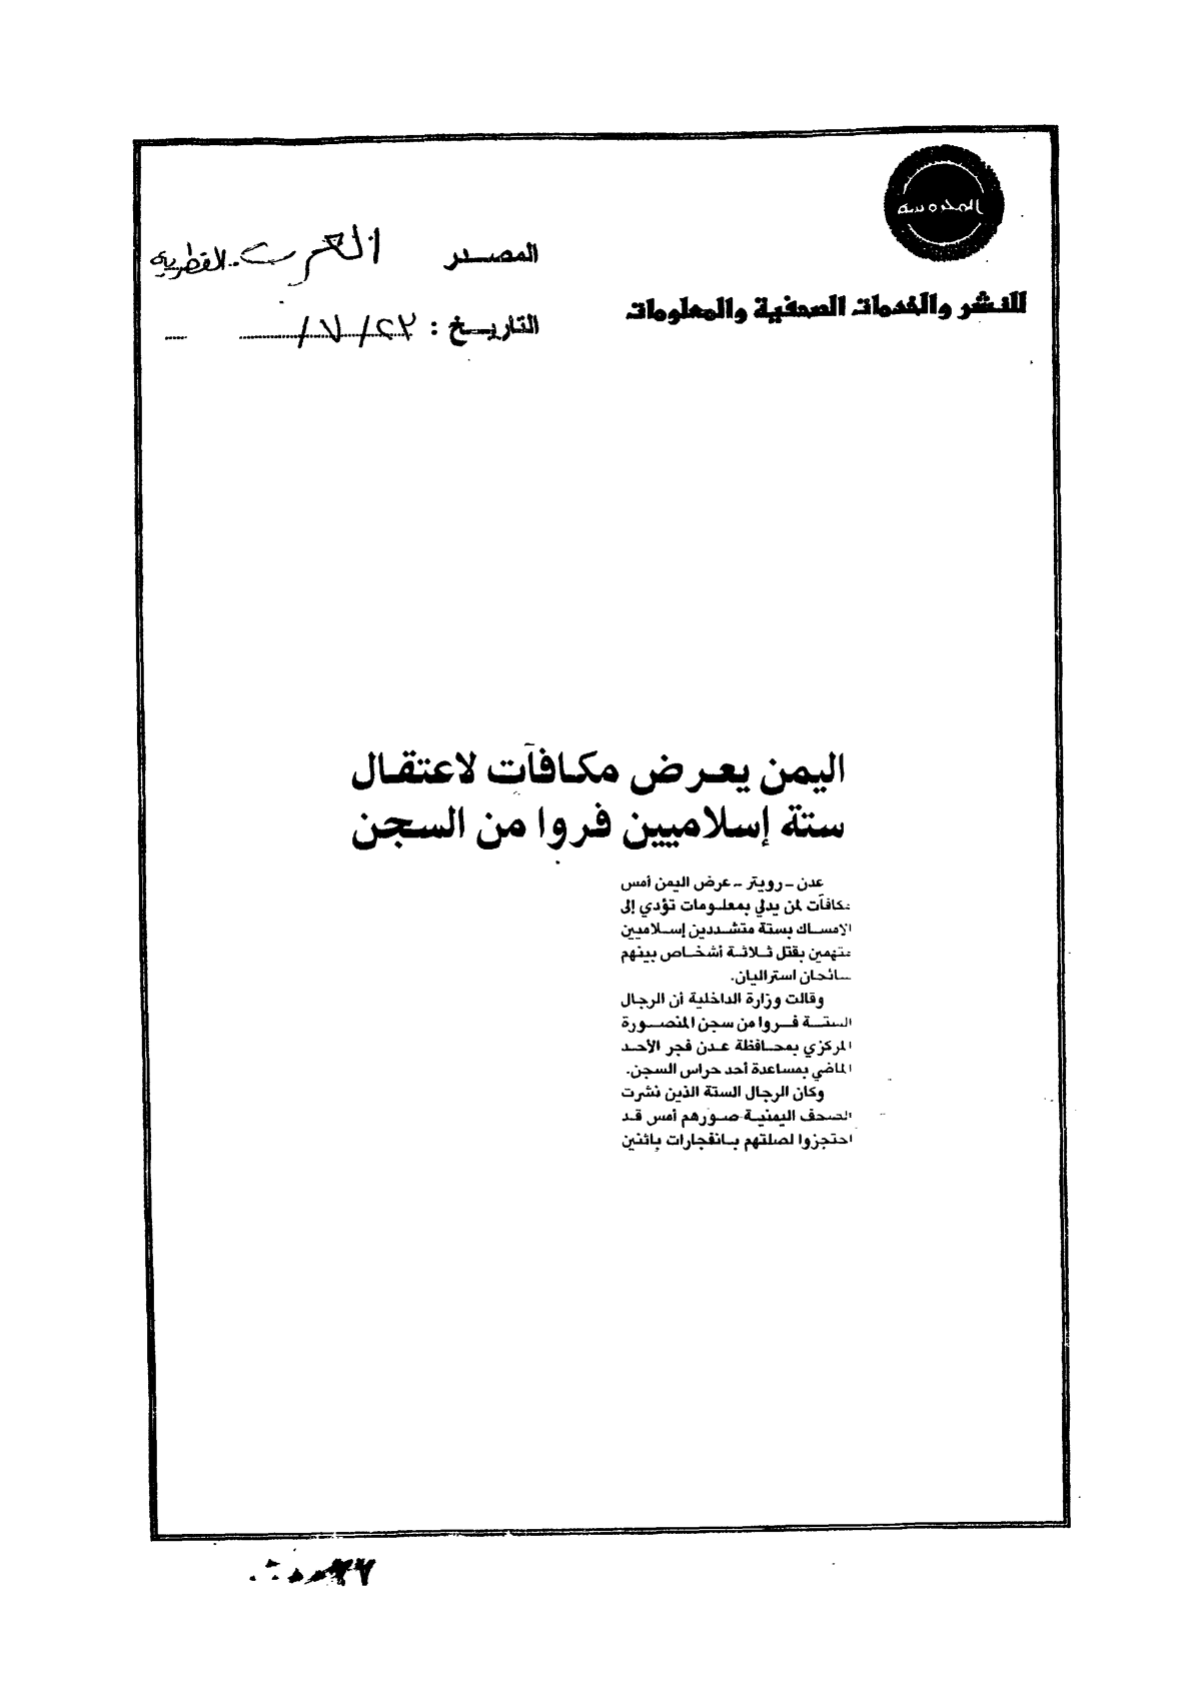 المحروسة
للنشر والخدمات الصحفية والمعلومات
المصدر العرب القطرية
التاريخ : ٢٢/٧/
اليمن يعرض مكافآت لاعتقال
ستة إسلاميين فروا من السجن
عدن - رويتر - عرض اليمن أمس
مكافآت لمن يدلي بمعلومات تؤدي إلى
الإمساك بستة متشددين إسلاميين
متهمين بقتل ثلاثة أشخاص بينهم
سائحان استراليان.
وقالت وزارة الداخلية أن الرجال
الستة فروا من سجن المنصورة
المركزي بمحافظة عدن فجر الأحد
الماضي بمساعدة أحد حراس السجن.
وكان الرجال الستة الذين نشرت
الصحف اليمنية صورهم أمس قد
احتجزوا لصلتهم بانفجارات باثنين